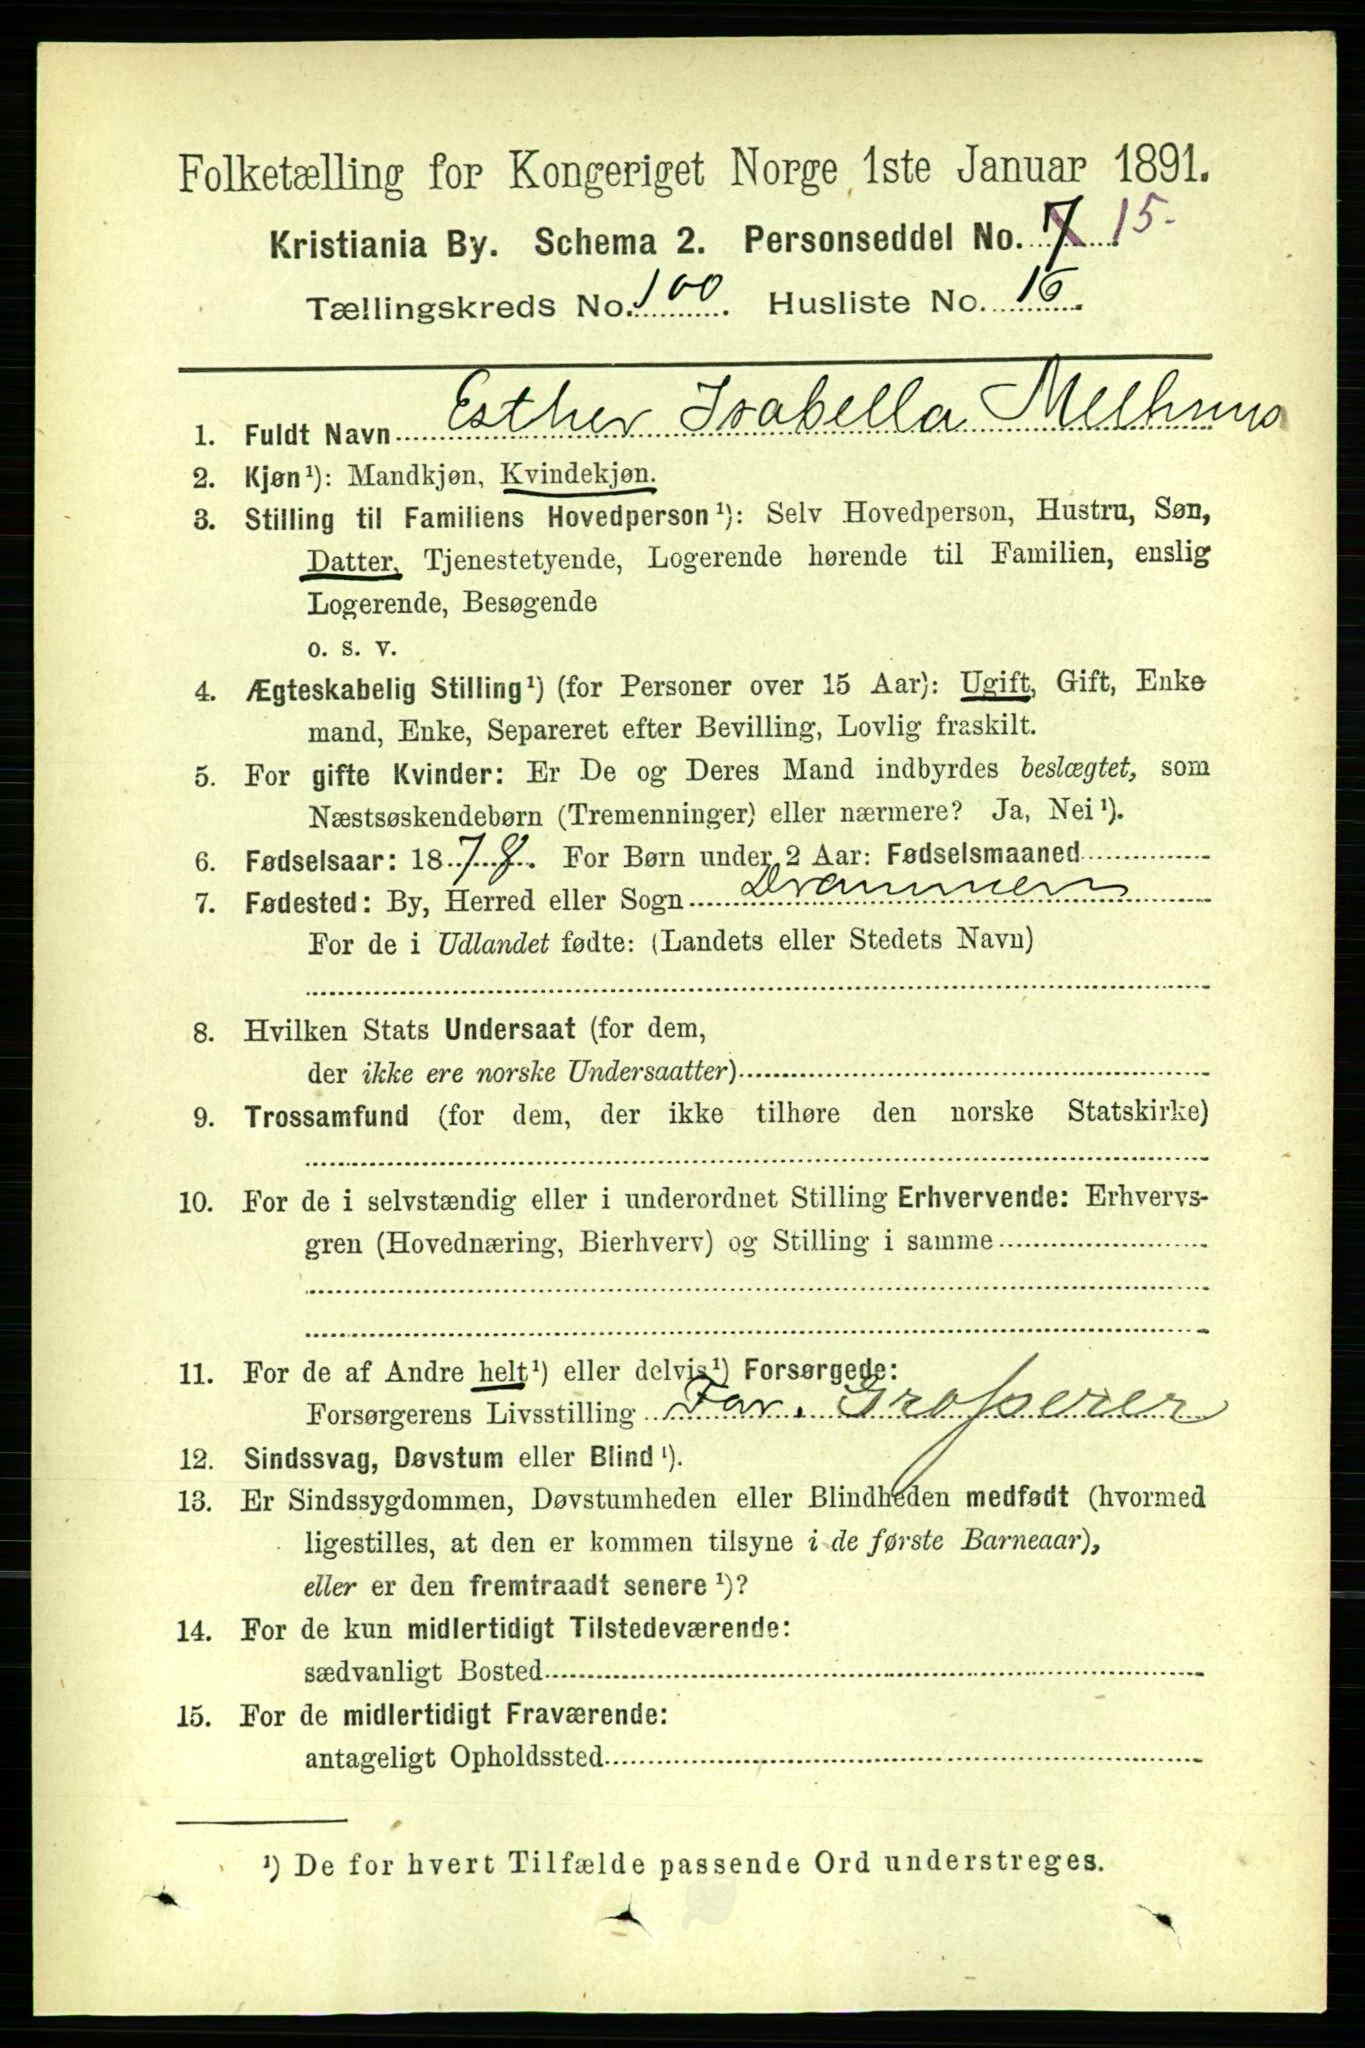 Folketælling for Kongeriget Norge 1ste Januar 1891.
Kristiania By. Schema 2. Personseddel No. 7 15-
Tællingskreds No. 100. Husliste No. 16.
1. Fuldt Navn Esther Isabella Melhuus
2. Kjøn¹): Mandkjøn, Kvindekjøn.
3. Stilling til Familiens Hovedperson¹): Selv Hovedperson, Hustru, Søn,
Datter, Tjenestetyende, Logerende hørende til Familien, enslig
Logerende, Besøgende
o. s. v.
4. Ægteskabelig Stilling¹) (for Personer over 15 Aar): Ugift, Gift, Enke
mand, Enke, Separeret efter Bevilling, Lovlig fraskilt.
5. For gifte Kvinder: Er De og Deres Mand indbyrdes beslægtet, som
Næstsøskendebørn (Tremenninger) eller nærmere? Ja, Nei¹).
6. Fødselsaar: 187 . For Børn under 2 Aar: Fødselsmaaned
7. Fødested: By, Herred eller Sogn Drammen
For de i Udlandet fødte: (Landets eller Stedets Navn)
8. Hvilken Stats Undersaat (for dem,
der ikke ere norske Undersaatter)
9. Trossamfund (for dem, der ikke tilhøre den norske Statskirke)
10. For de i selvstændig eller i underordnet Stilling Erhvervende: Erhvervs-
gren (Hovednæring, Bierhverv) og Stilling i samme
11. For de af Andre helt¹) eller delvis¹) Forsørgede:
Forsørgerens Livsstilling Far. Grosserer
12. Sindssvag, Døvstum eller Blind¹).
13. Er Sindssygdommen, Døvstumheden eller Blindheden medfødt (hvormed
ligestilles, at den er kommen tilsyne i de første Barneaar),
eller er den fremtraadt senere¹)?
14. For de kun midlertidigt Tilstedeværende:
sædvanligt Bosted
15. For de midlertidigt Fraværende:
antageligt Opholdssted
¹) De for hvert Tilfælde passende Ord understreges.